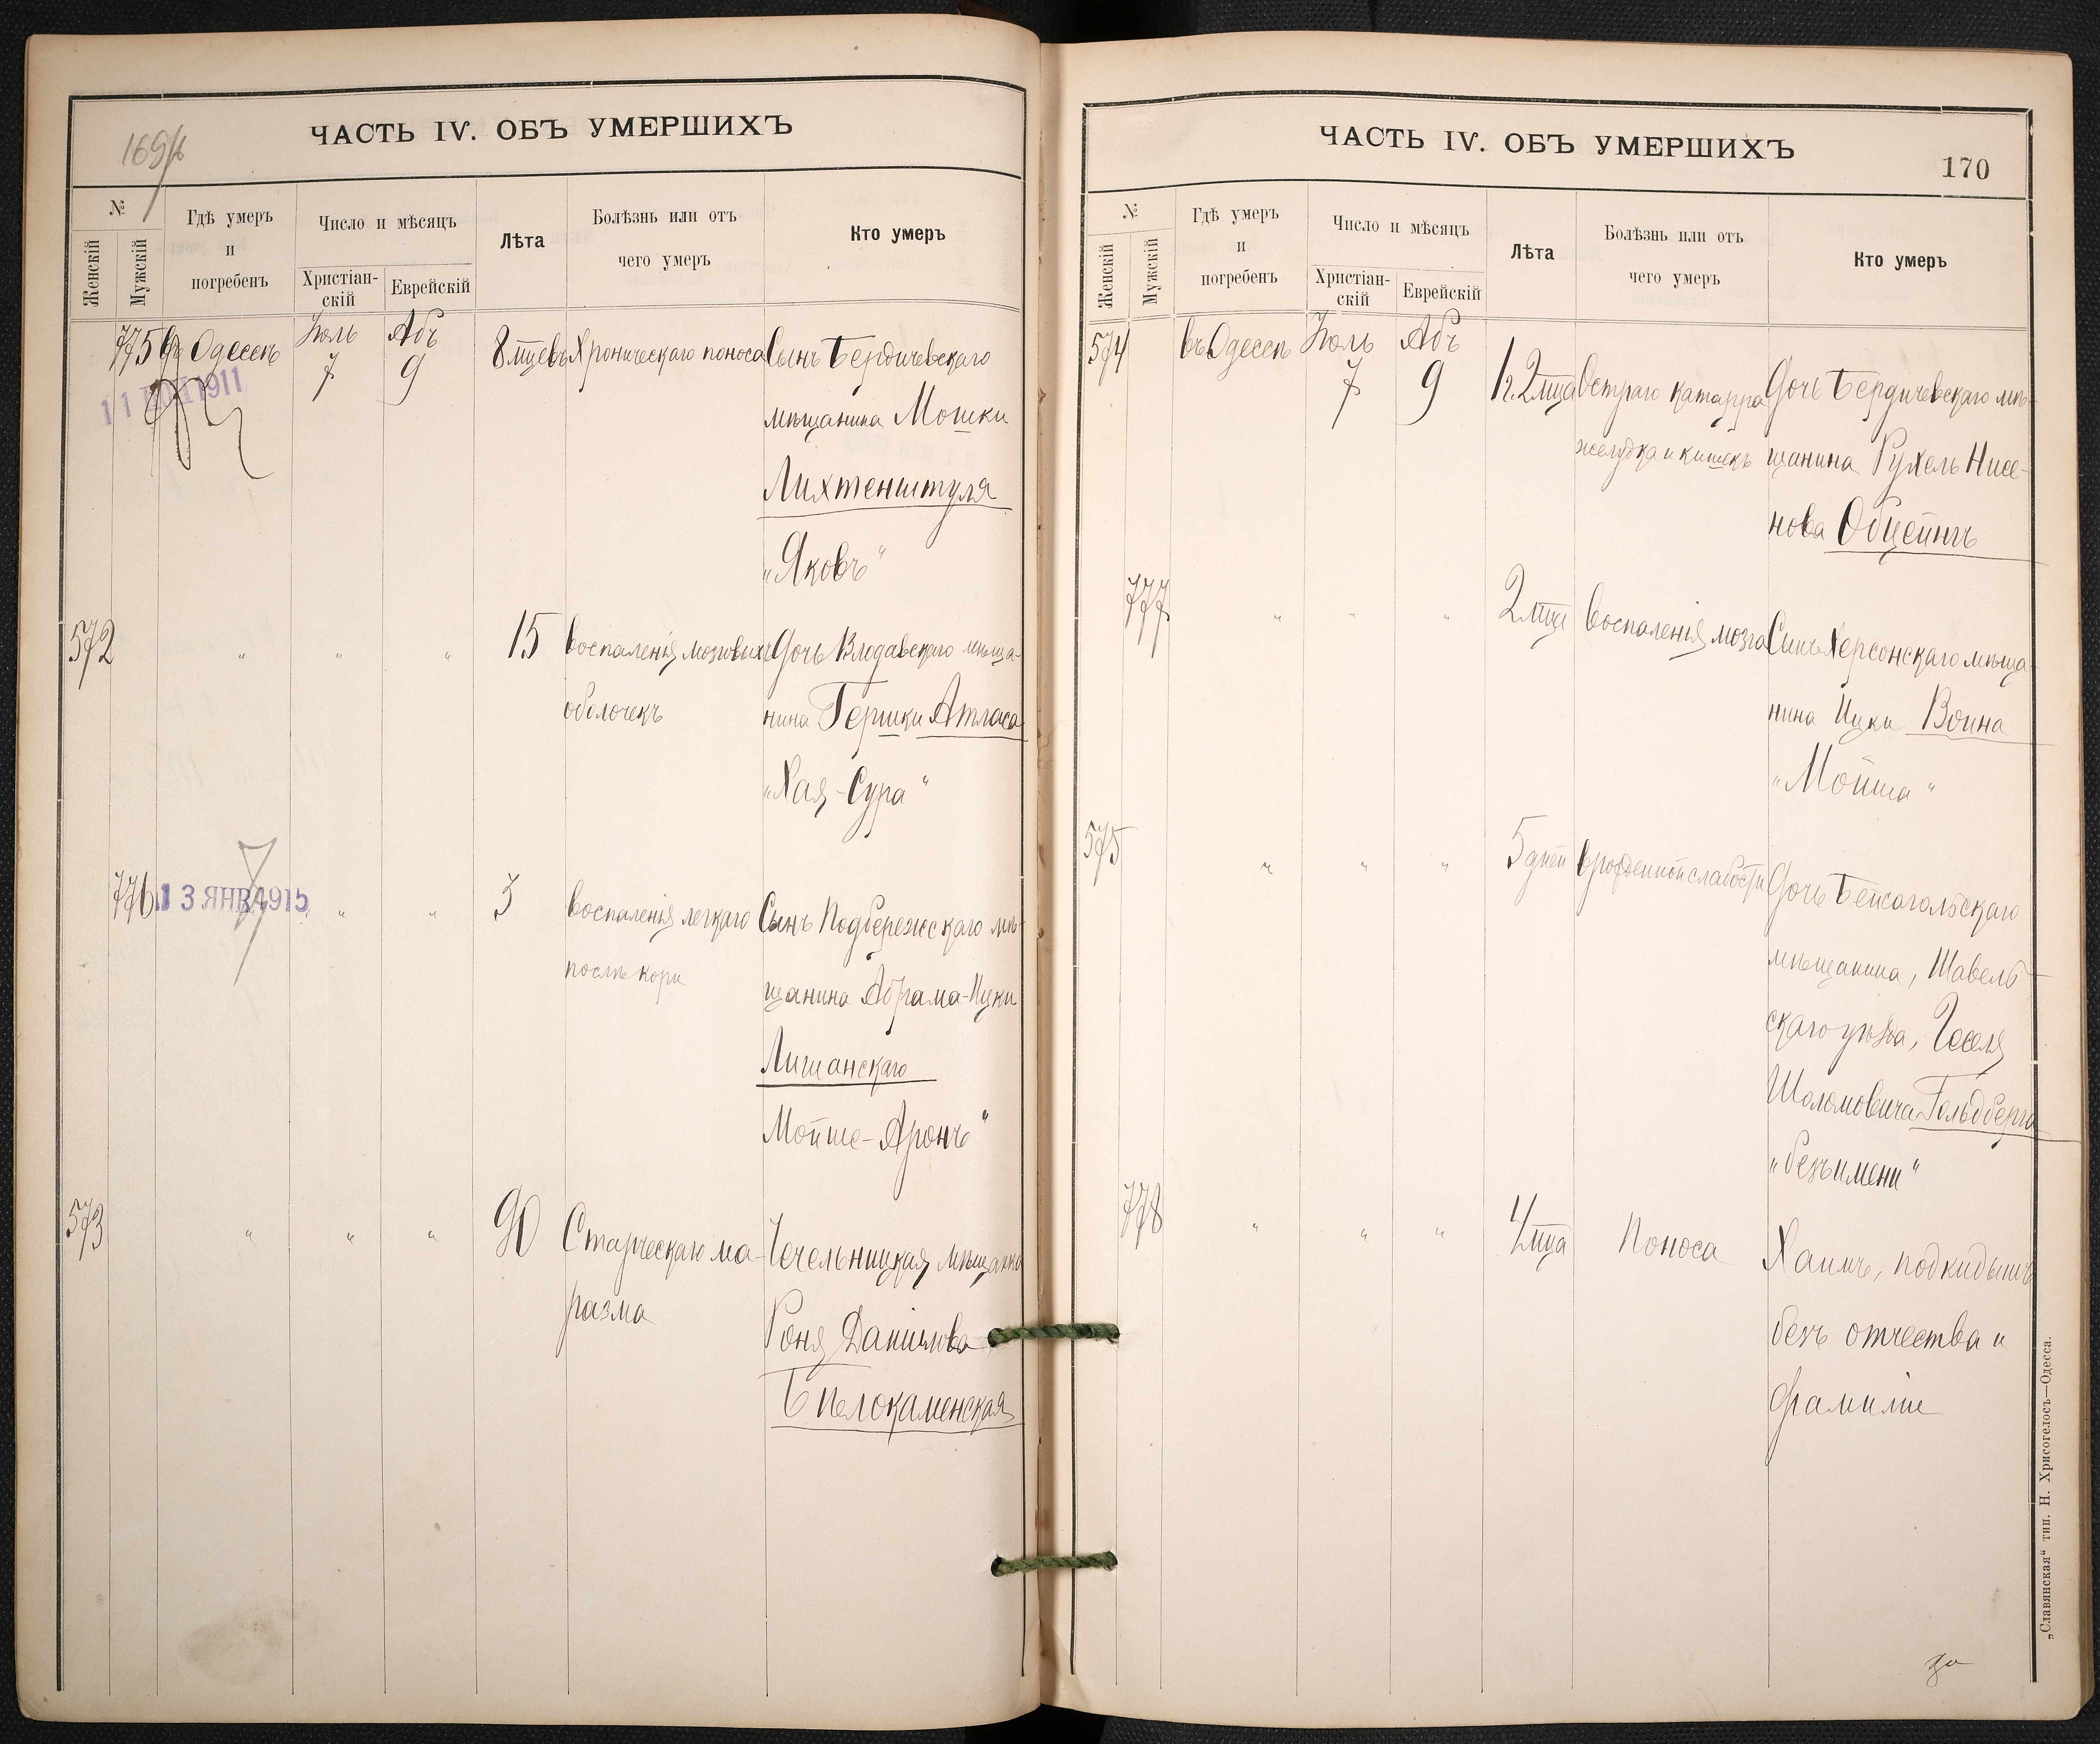 169/б
ЧАСТЬ IV. ОБЪ УМЕРШИХЪ
№
Женскій
Мужскій
Гдѣ умеръ
и
погребенъ
Число и мѣсяцъ
Христіан-
скій
Еврейскій
Лѣта
Болѣзнь или отъ
чего умеръ
Кто умеръ
775 въ Одессѣ Іюль Абъ 8 мцевъ Хроническаго поноса Сынъ Бердичевскаго
7 9
11 1911
мѣщанина Мошки
Лихтенштуля
„Яковъ“
572 " " " 15 воспаленія мозговыхъ Дочь Влодавскаго мѣща-
оболочекъ нина Гершки Атласа
„Хая-Сура“
776 13 ЯНВ 1915 " " " 3 воспаленія легкаго Сынъ Подбережскаго мѣ-
послѣ кори щанина Абрама-Ицки
Лишанскаго
Мойше-Аронъ“
573 " " " 90 Старческаго ма- Чечельницкая мѣщанка
разма Роня Данилова
Бѣлокаменская
ЧАСТЬ IV. ОБЪ УМЕРШИХЪ
170
№
Женскій
Мужскій
Гдѣ умеръ
и
погребенъ
Число и мѣсяцъ
Христіан-
скій
Еврейскій
Лѣта
Болѣзнь или отъ
чего умеръ
Кто умеръ
574 въ Одессѣ Іюль Абъ 1 г. 2 мца Остраго катарра Дочь Бердичевскаго мѣ-
7 9
желудка и кишекъ щанина Рухель Нисе-
нова Обцейнъ
777 " " " 2 мца воспаленія мозга Сынъ Херсонскаго мѣща-
нина Ицки Воина
„Мойша“
575 " " " 5 дней врожденной слабости Дочь Бейсагольскаго
мѣщанина, Шавель-
скаго уѣзда,
Шоломовича Гольдберга
„безъ имени“
778 " " " 4 мца Поноса Хаимъ, подкидышъ
безъ отчества и
фамиліи
„Славянская“ тип. Н. Хрисогелосъ—Одесса.